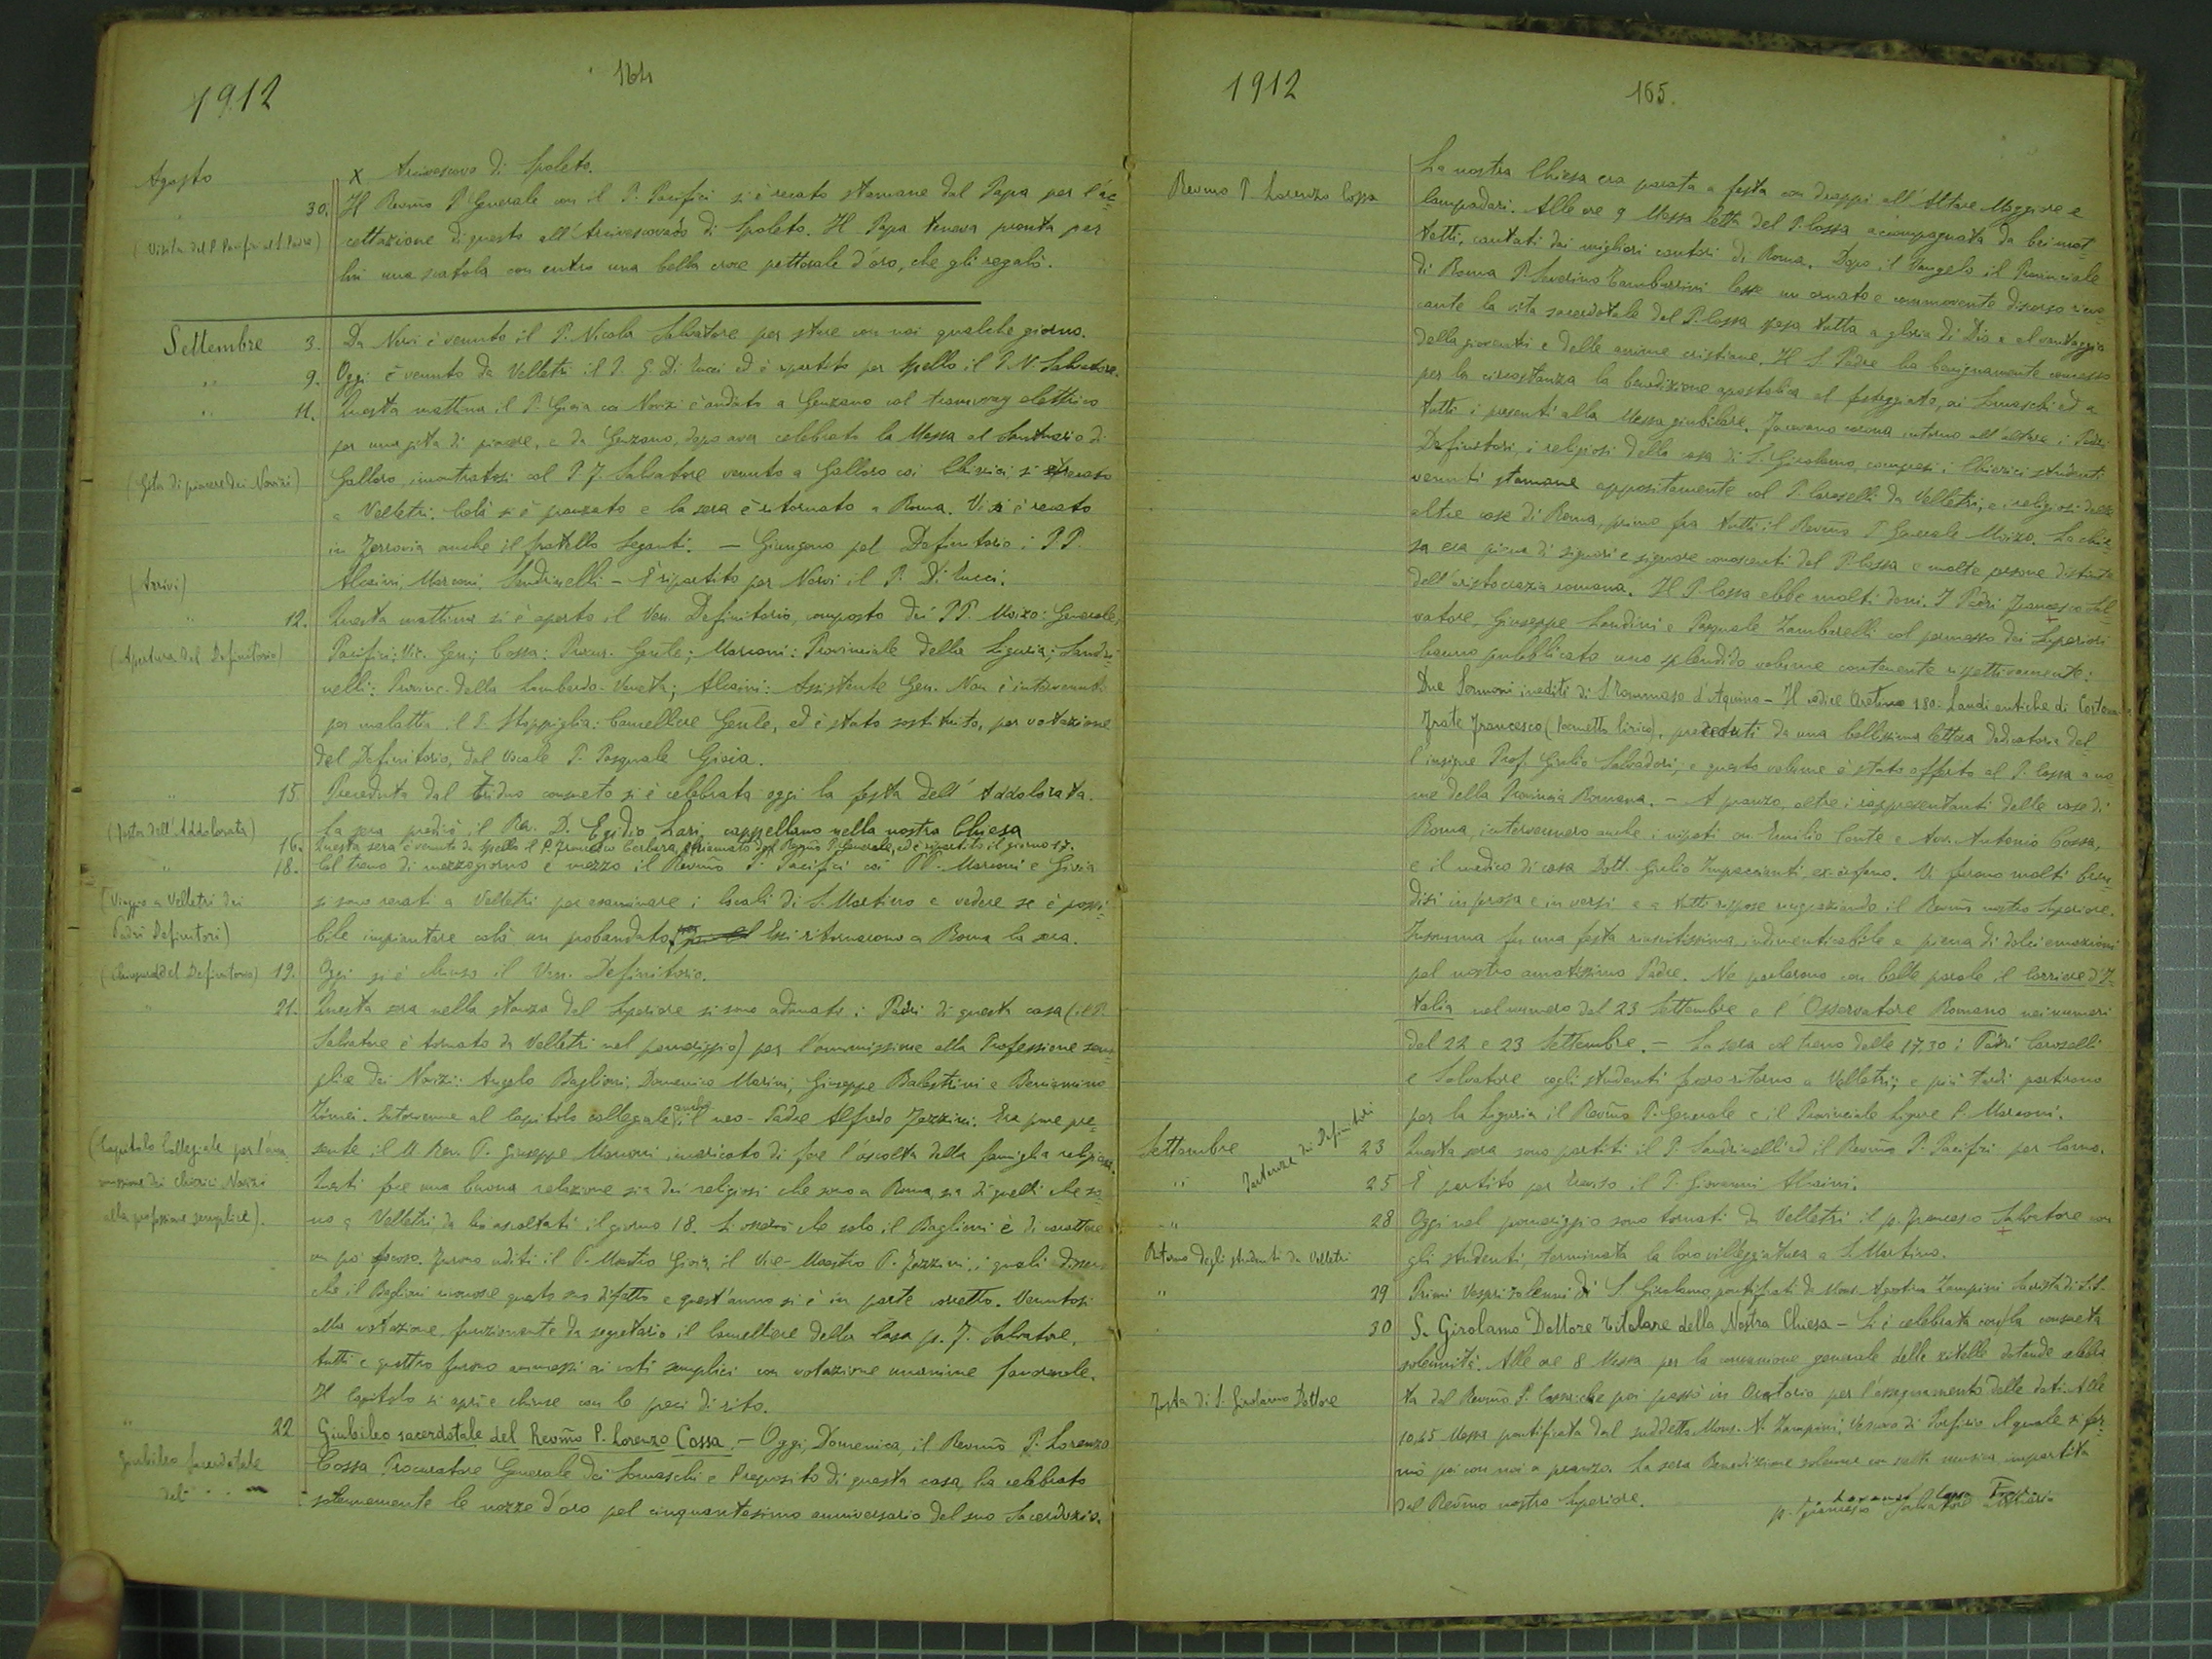 1912
164
Agosto
X Arcivescovo di Spoleto.
30. Il Revmo P. Generale con il P. Pacifici si è recato stamane dal Papa per l'ac-
(Visita del P. Pacifici al S. Padre)
cettazione di questo all'Arcivescovado di Spoleto. Il Papa teneva pronta per
lui una scatola con entro una bella croce pettorale d'oro, che gli regalò.
Settembre 3. Da Nervi è venuto il P. Nicola Salvatore per stare con noi qualche giorno.
" 9. Oggi è venuto da Velletri il P. G. Di Tucci ed è ripartito per Spello il P. N. Salvatore.
" 11. Questa mattina il P. Gioia coi Novizi è andato a Genzano col tramway elettrico
per una gita di piacere, e da Genzano, dopo aver celebrato la Messa al Santuario di
(Gita di piacere dei Novizi)
Galloro, incontratosi col P. F. Salvatore venuto a Galloro coi Chierici si è recato
a Velletri. Colà si è pranzato e la sera è ritornato a Roma. Vi si è recato
in ferrovia anche il fratello Seganti. — Giungono pel Definitorio i PP.
(Arrivi)
Alcaini, Marconi, Sandrinelli – È ripartito per Nervi il P. Di Tucci.
" 12. Questa mattina si è aperto il Ven. Definitorio, composto dei PP. Moizo: Generale;
(Apertura del Definitorio)
Pacifici: Vic. Gen.; Cossa: Procur. Genle; Marconi: Provinciale della Liguria; Sandri-
nelli: Provinc. della Lombardo-Veneta; Alcaini: Assistente Gen. Non è intervenuto
per malattia il P. Stoppiglia: Cancelliere Genle, ed è stato sostituito, per votazione
del Definitorio, dal Vocale P. Pasquale Gioia.
" 15. Preceduta dal triduo consueto si è celebrata oggi la festa dell'Addolorata.
(Festa dell'Addolorata)
La sera predicò il Rev. D. Egidio Lari cappellano nella nostra Chiesa
16. Questa sera è venuto da Spello il P. Francesco Cerbara, chiamato dal Revmo P. Generale, ed è ripartito il giorno 17.
" 18. Col treno di mezzogiorno e mezzo il Revmo P. Pacifici coi PP. Marconi e Gioia
(Viaggio a Velletri dei
Padri Definitori)
si sono recati a Velletri per esaminare i locali di S. Martino e vedere se è possi-
bile impiantare colà un probandato. Essi ritornarono a Roma la sera.
(Chiusura del Definitorio) 19. Oggi si è chiuso il Ven. Definitorio.
" 21. Questa sera nella stanza del Superiore si sono adunati i Padri di questa casa (il P.
Salvatore è tornato da Velletri nel pomeriggio) per l'ammissione alla Professione sem-
plice dei Novizi: Angelo Baglioni, Domenico Marini, Giuseppe Balestrini e Beniamino
Intervenne al Capitolo collegiale anche il neo-Padre Alfredo Fazzini. Era pure pre-
(Capitolo Collegiale per l'am-
missione dei Chierici Novizi
alla professione semplice).
sente il M. Rev. P. Giuseppe Marconi, incaricato di fare l'ascolta della famiglia religiosa.
Questi fece una buona relazione sia dei religiosi che sono a Roma, sia di quelli che so-
no a Velletri, da lui ascoltati il giorno 18. Si osservò che solo il Baglioni è di carattere
un po' focoso. Furono uditi il P. Maestro Gioia, il Vice-Maestro P. Fazzini, i quali dissero
che il Baglioni riconosce questo suo difetto e quest'anno si è in parte corretto. Venutosi
alla votazione, funzionante da segretario il Cancelliere della Casa p. F. Salvatore,
tutti e quattro furono ammessi ai voti semplici con votazione unanime favorevole.
Il Capitolo si aprì e chiuse con le preci di rito.
" 22 Giubileo sacerdotale del Revmo P. Lorenzo Cossa. – Oggi, Domenica, il Revmo P. Lorenzo
Giubileo sacerdotale
del
Cossa Procuratore Generale dei Somaschi e Preposito di questa casa, ha celebrato
solennemente le nozze d'oro pel cinquantesimo anniversario del suo Sacerdozio.
1912
165.
Revmo P. Lorenzo Cossa
La nostra Chiesa era parata a festa con drappi all'Altare Maggiore e
lampadari. Alle ore 9 Messa letta del P. Cossa accompagnata da bei mot-
tetti, cantati dai migliori cantori di Roma. Dopo il Vangelo il Provinciale
di Roma P. Severino Tamburrini lesse un ornato e commovente discorso rievo-
cante la vita sacerdotale del P. Cossa spesa tutta a gloria di Dio e al vantaggio
della gioventù e delle anime cristiane. Il S. Padre ha benignamente concesso
per la circostanza la benedizione apostolica al festeggiato, ai Somaschi ed a
tutti i presenti alla Messa giubilare. Facevano corona intorno all'altare i Padri
Definitori, i religiosi della casa di S. Girolamo, compresi i Chierici studenti
venuti stamane appositamente col P. Caroselli da Velletri, e i religiosi delle
altre case di Roma, primo fra tutti il Revmo P. Generale Moizo. La chie-
sa era piena di signori e signore conoscenti del P. Cossa e molte persone distinte
dell'aristocrazia romana. Il P. Cossa ebbe molti doni. I Padri Francesco Sal-
vatore, Giuseppe Landini e Pasquale Zambarelli col permesso dei Superiori
hanno pubblicato uno splendido volume contenente rispettivamente:
Due Sermoni inediti di S. Tommaso d'Aquino – Il codice Aretino 180. Laudi antiche di Cortona –
Frate Francesco (Poemetto lirico), preceduti da una bellissima lettera dedicatoria del
l'insigne Prof. Giulio Salvadori; e questo volume è stato offerto al P. Cossa a no-
me della Provincia Romana. – A pranzo, oltre i rappresentanti delle case di
Roma, intervennero anche i nipoti on. Emilio Conte e Avv. Antonio Cossa,
e il medico di casa Dott. Giulio Impaccianti, ex-orfano. Vi furono molti brin-
disi in prosa e in versi e a tutti rispose ringraziando il Revmo nostro Superiore.
Insomma fu una festa riuscitissima, indimenticabile e piena di dolci emozioni
pel nostro amatissimo Padre. Ne parlarono con belle parole il Corriere d'I-
talia nel numero del 23 Settembre e l'Osservatore Romano nei numeri
del 22 e 23 Settembre. – La sera col treno delle 17,30 i Padri Caroselli
e Salvatore cogli studenti fecero ritorno a Velletri; e più tardi partirono
per la Liguria il Revmo P. Generale e il Provinciale Ligure P. Marconi.
Settembre Partenza dei Definitori 23 Questa sera sono partiti il P. Sandrinelli ed il Revmo P. Pacifici per Como.
" 25 È partito per Treviso il P. Giovanni Alcaini.
" 28 Oggi nel pomeriggio sono tornati da Velletri il p. Francesco Salvatore con
Ritorno degli studenti da Velletri
gli studenti, terminata la loro villeggiatura a S. Martino.
" 29 Primi Vespri solenni di S. Girolamo, pontificati da Mons. Agostino Zampini Sacrista di S.S.
30 S. Girolamo Dottore Titolare della Nostra Chiesa – Si è celebrata con la consueta
solennità. Alle ore 8 Messa per la comunione generale delle zitelle dotande celebra-
Festa di S. Girolamo Dottore
ta dal Revmo P. Cossa, che poi passò in Oratorio per l'assegnamento delle doti. Alle
10,45 Messa pontificata dal suddetto Mons. A. Zampini, Vescovo di Porfirio il quale si fer-
mò poi con noi a pranzo. La sera Benedizione solenne con scelta musica impartita
dal Revmo nostro Superiore.
p. Francesco Salvatore